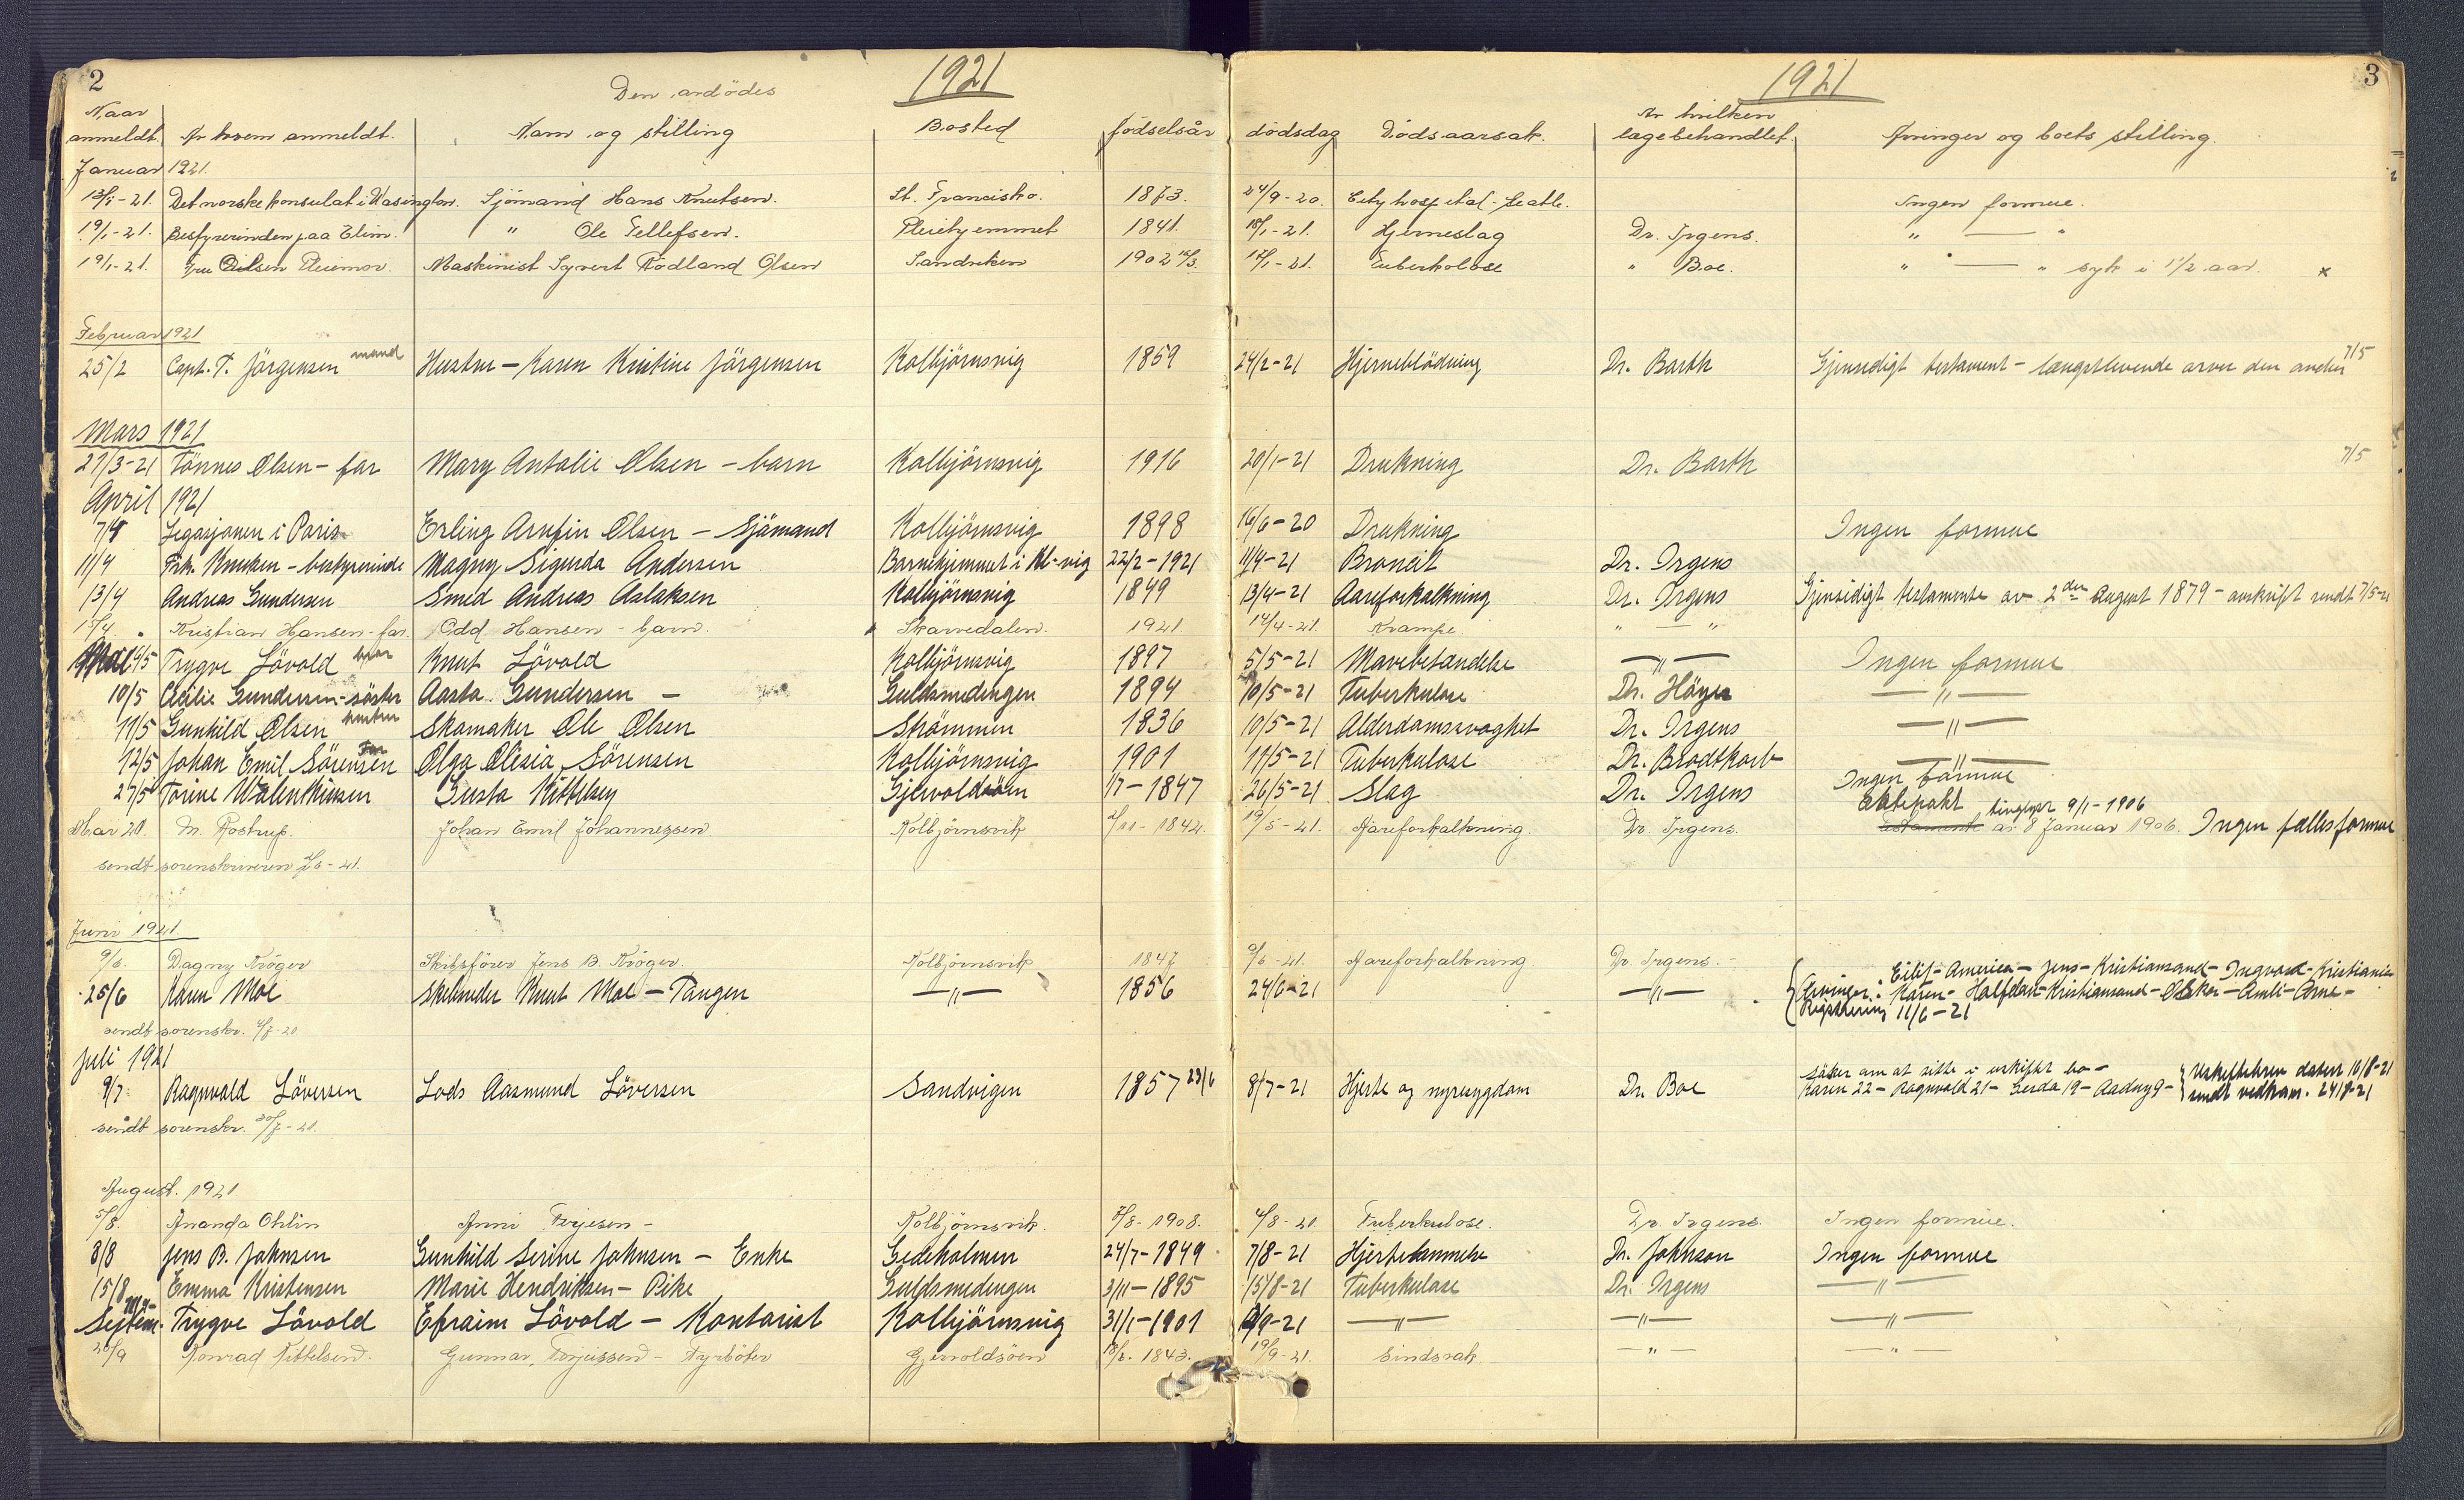 2
1921
1921
3
Den avdödes
Naar anmeldt. Av hvem anmeldt. Navn og stilling Bosted födselsår dödsdag Dödsaarsak. Av hvilken læge behandlet. Arvinger og boets stilling.
Januar 1921.
13/1-21. Det norske konsulat i Wasington. Sjömand Hans Knutsen. St. Francisko. 1873. 24/9-20. City hospital - Seatle. Ingen formue.
19/1-21. Bestyrerinden paa Elim. " Ole Tellefsen. Pleiehjemmet 1841. 18/1-21. Hjerneslag Dr. Irgens. " — "
19/1-21. Fru Nilsen Pleiemor. Maskinist Syvert Rödland Olsen Sandviken 1902 16/3. 17/1-21. Tuberkolose " Boe. " — " syk i 1 1/2 aar. x
Februar 1921
25/2 Capt. T. Jörgensen mand Hustru - Karen Kristine Jörgensen Kolbjörnsvig 1859 24/2-21 Hjerneblödning Dr. Barth Gjensidigt testament - længstlevende arver den anden 7/5
Mars 1921
27/3-21 Tönnes Olsen - far Mary Antalie Olsen - barn Kolbjörnsvig 1916 20/1-21 Drukning Dr. Barth 7/5
April 1921
7/4 Legasjonen i Paris Erling Arnfin Olsen - Sjömand Kolbjörnsvig 1898 16/6-20 Drukning Ingen formue
11/4 Frk. Knutsen - bestyrerinde Magny Sigurda Andersen Barnehjemmet i Kl-vig 22/2-1921 11/4-21 Broncit Dr. Irgens
13/4 Andreas Gundersen Smed Andreas Aslaksen Kolbjörnsvig 1849 13/4-21 Aareforkalkning Dr. Irgens Gjensidigt testamente av 2den August 1879 - avskrift sendt 7/5-21
15/4. Kristian Hansen - far. Odd Hansen - barn. Skarvedalen. 1921 14/4-21. Krampe. " — "
Mai 6/5 Trygve Lövold bror Knut Lövold Kolbjörnsvig 1897 5/5-21 Mavebetændelse —"— Ingen formue
10/5 Cecilie Gundersen - söster Aasta Gundersen - Guldsmedengen 1894 10/5-21 Tuberkulose Dr. Höyer —"—
11/5 Gunhild Olsen hustru Skomaker Ole Olsen Strömmen 1836 10/5-21 Alderdomssvaghet Dr. Irgens —"—
12/5 Johan Emil Sörensen Far Olga Olisia Sörensen Kolbjörnsvig 1901 11/5-21 Tuberkulose Dr. Brodtkorb —"—
27/5 Torine Walenthinsen Gusta Kittelsen Gjervoldsöen 1/7-1847 26/5-21 Slag Dr. Irgens Ingen formue
Mai 20. M. Rostrup. Johan Emil Johannessen Kolbjörnsvik 2/11-1842. 19/5-21. Aareforkalkning. Dr. Irgens. Ektepakt tinglyst 9/1-1906
testamente av 8 Januar 1906. Ingen fællesformue
sendt sorenskriveren 2/6-21.
Juni 1921.
9/6. Dagny Kröger Skibsförer Jens B. Kröger. Kolbjörnsvik 1847 9/6-21. Aareforkalkning Dr. Irgens.
25/6 Karen Moe Skibsreder Knut Moe - Tangen —"— 1856 24/6-21 —"— Eilif - America - Jens - Kristiansand - Ingvald - Kristiania
Arvinger: Karen - Halfdan - Kristiansand - Osker - Amli - Arne -
Registrering 11/6-21
sendt sorenskr. 4/7-20
Juli 1921
9/7 Ragnvald Löversen Lods Aasmund Löversen Sandvigen 1857 23/6 8/7-21 Hjerte og nyresygdom Dr. Boe Söker om at sitte i uskiftet bo -
Karen 22 - Ragnvald 21 - Gerda 19 - Aadny 9 - } Uskiftebrev datert 16/8-21
sendt vedkom. 24/8-21
sendt sorenskr. 30/7-20.
August. 1921
5/8. Ananda Ohlin Anni Terjesen - Kolbjörnsvik. 7/8-1908. 4/8-20 Tuberkulose. Dr. Irgens. Ingen formue.
8/8 Jens B. Johnsen Gunhild Serine Johnsen - Enke Gedeholmen 24/7-1849 7/8-21 Hjertelammelse Dr. Johnson Ingen formue
15/8 Emma Kristensen Marie Hendriksen - Pike Guldsmedengen 3/11-1895 15/8-21 Tuberkulose Dr. Irgens —"—
Septem. Trygve Lövold Efraim Lövold - Kontorist Kolbjörnsvig 31/1-1901 9/9-21 —"— —"— —"—
20/9 Konrad Kittelsen. Gunnar Terjussen - Fyrböter Gjervoldsöen 18/2-1843. 19/9-21. Sindsvak —"— —"—